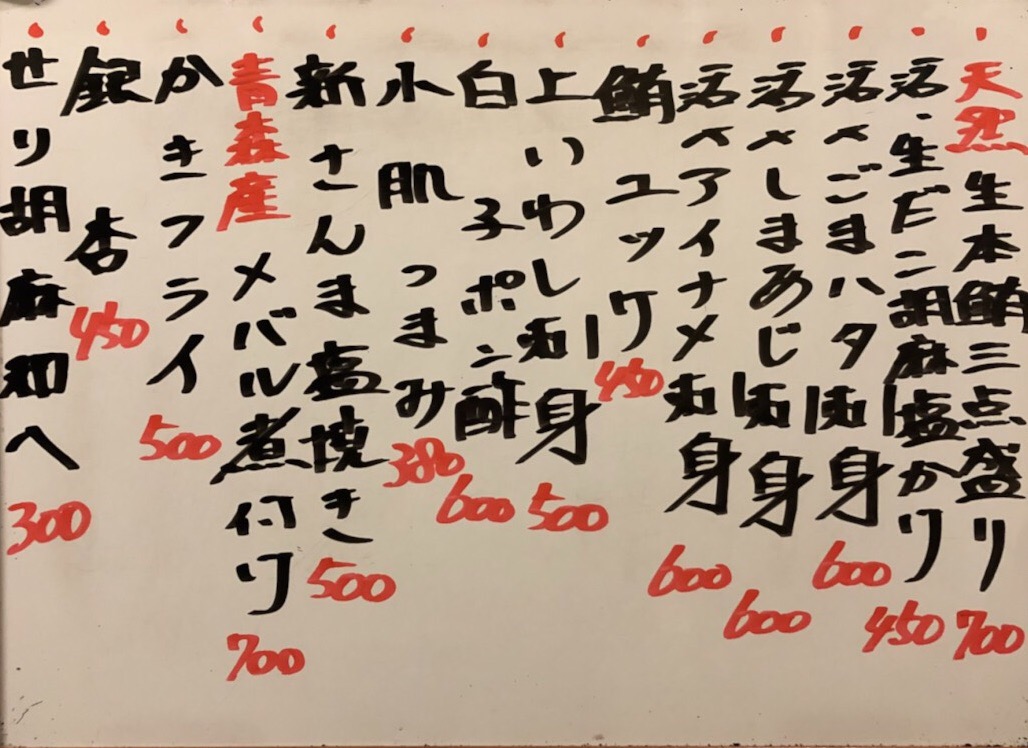 天然 生本鮪三点盛り 700
活・生だこ胡麻塩かり 450
活〆ごまハタ刺身 600
活〆しまあじ刺身 600
活〆アイナメ刺身 600
鮪ユッケ 450
上いわし刺身 500
白子ポン酢 600
小肌つまみ 380
新さんま塩焼き 500
青森産 メバル煮付け 700
かきフライ 500
銀杏 450
せり胡麻和へ 300